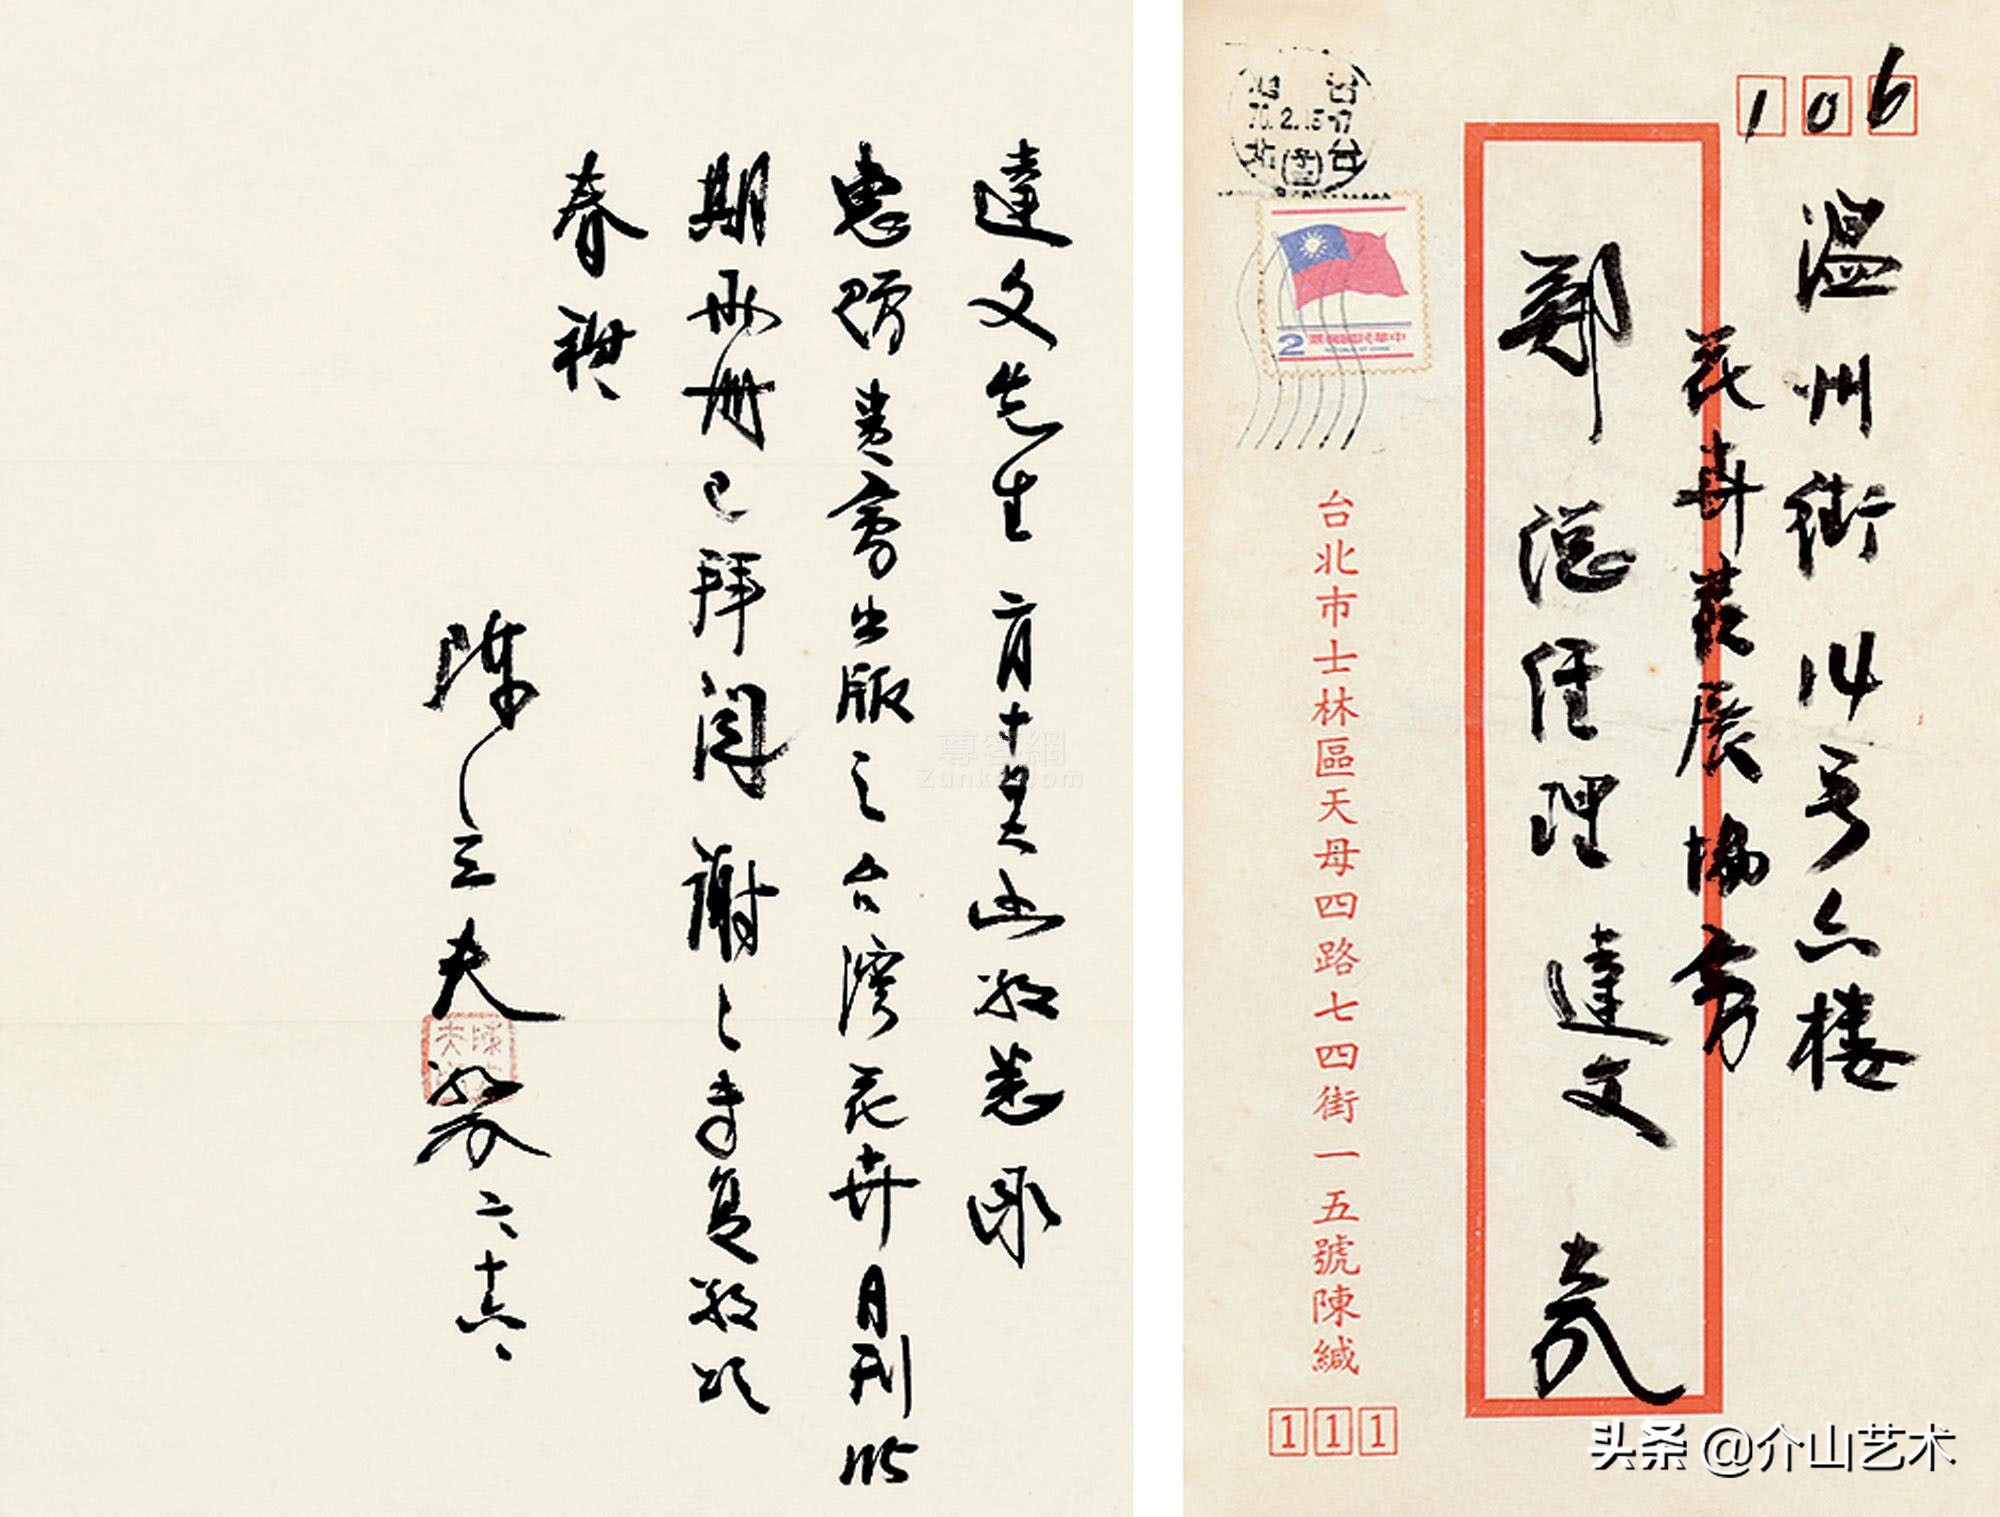 達文先生二月十四大函敬悉承
惠贈貴會出版之台灣花卉月刊創
期兩冊已拜閱謝謝專復敬頌
春祺
陳立夫敬啓 二、十六、
106
溫州街14号六楼
花卉發展協會
鄭總經理達文啓
台北市士林區天母四路七四街一五號陳緘
111
70.2.15
中華民國郵票
REPUBLIC OF CHINA
2
尊客網
Zunke.com
头条 @介山艺术